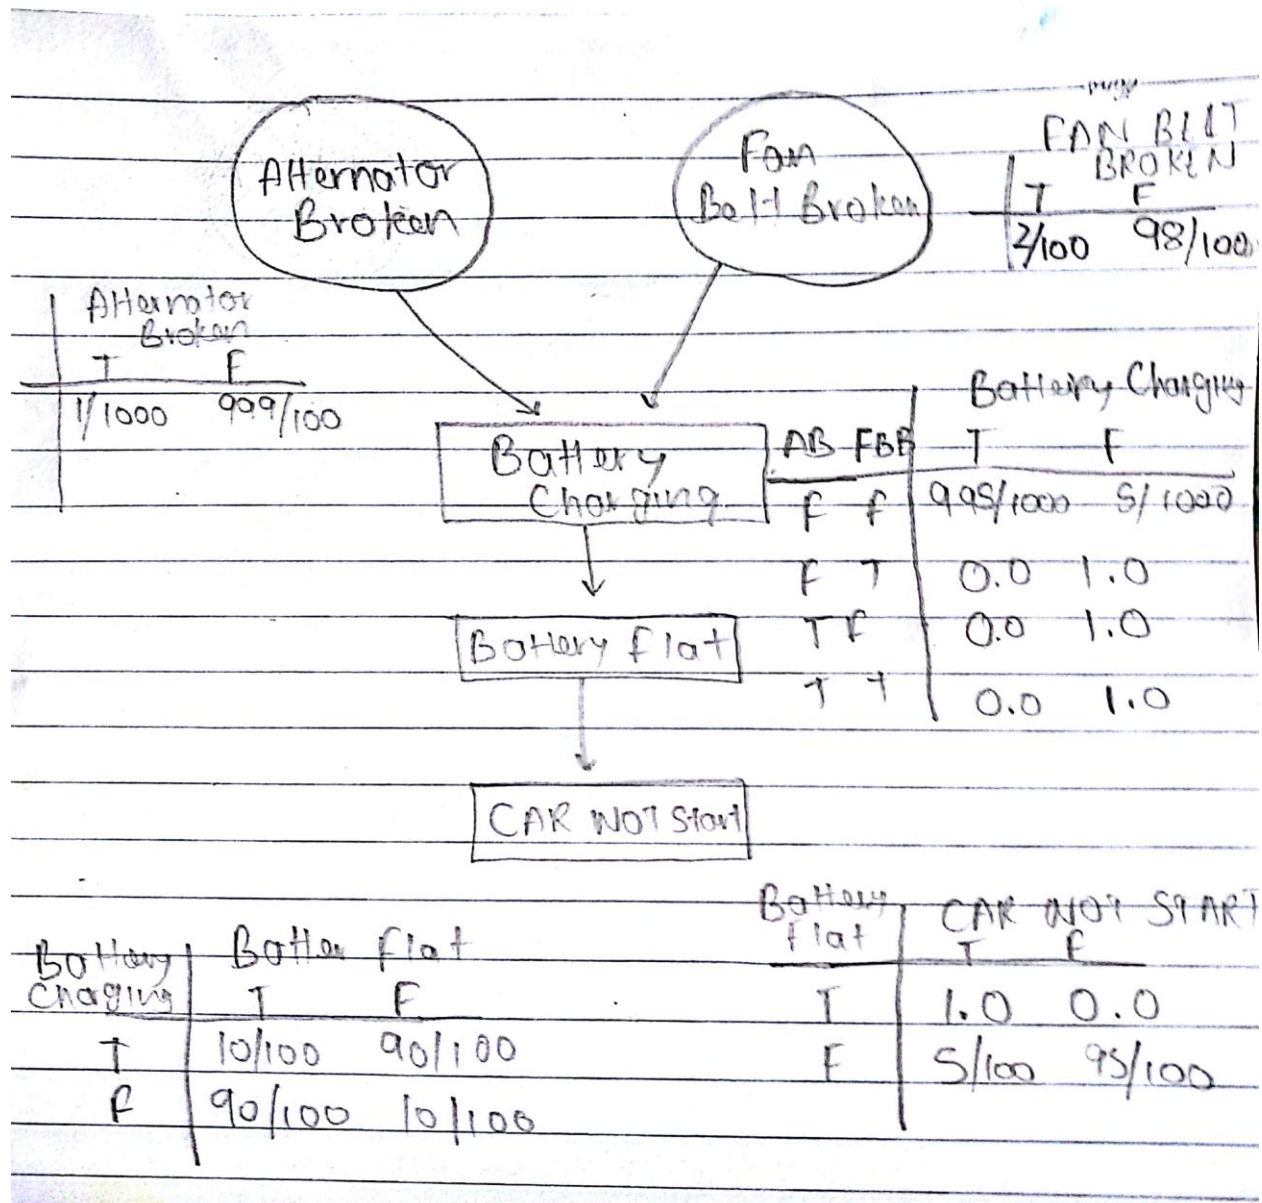 Alternator
Broken
Fan
Belt Broken
FAN BELT
BROKEN
T F
2/100 98/100
Alternator
Broken
T F
1/1000 999/100
Battery
Charging
Battery Charging
AB FBB T F
F F 995/1000 5/1000
F T 0.0 1.0
T F 0.0 1.0
T T 0.0 1.0
Battery Flat
CAR NOT Start
Battery
Charging
Batter Flat
T F
T 10/100 90/100
F 90/100 10/100
Battery
Flat
CAR NOT START
T F
T 1.0 0.0
F 5/100 95/100